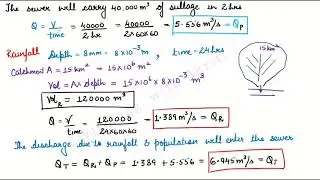 The sewer will carry 40,000 m³ of sullage in 2 hrs
Q = V/time = 40000/2hr = 40000/2x60x60 - 5.556 m³/s = Qp
Rainfall Depth = 8mm - 8x10⁻³ m , time = 24hrs
Catchment A = 15 km² = 15x10⁶ m²
15 km²
Vol = A x depth = 15x10⁶ x 8x10⁻³ m³
Vol_R = 120000 m³
Q = V/time = 120000/24x60x60 - 1.389 m³/s = Q_R
The discharge due to rainfall & population will enter the sewer
Q_T = Q_R + Q_P = 1.389 + 5.556 = 6.945 m³/s = Q_T